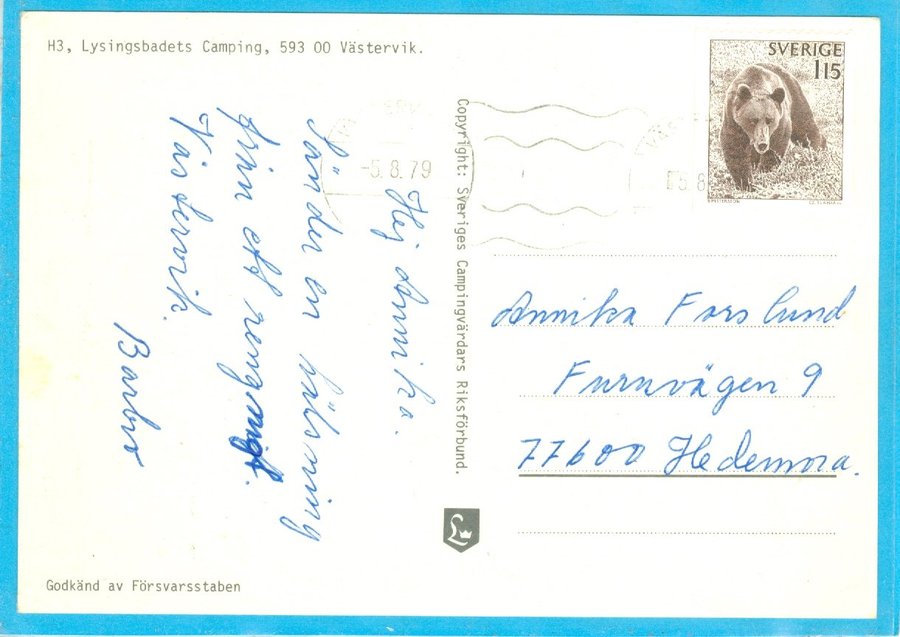 H3, Lysingsbadets Camping, 593 00 Västervik.
SVERIGE
1 15
-5.8.79
Hej Annika.
Sänder en hälsning
från ett regnigt
Västervik.
Barbro
Copyright: Sveriges Campingvärdars Riksförbund.
Annika Forslund
Furuvägen 9
77600 Hedemora.
Godkänd av Försvarsstaben